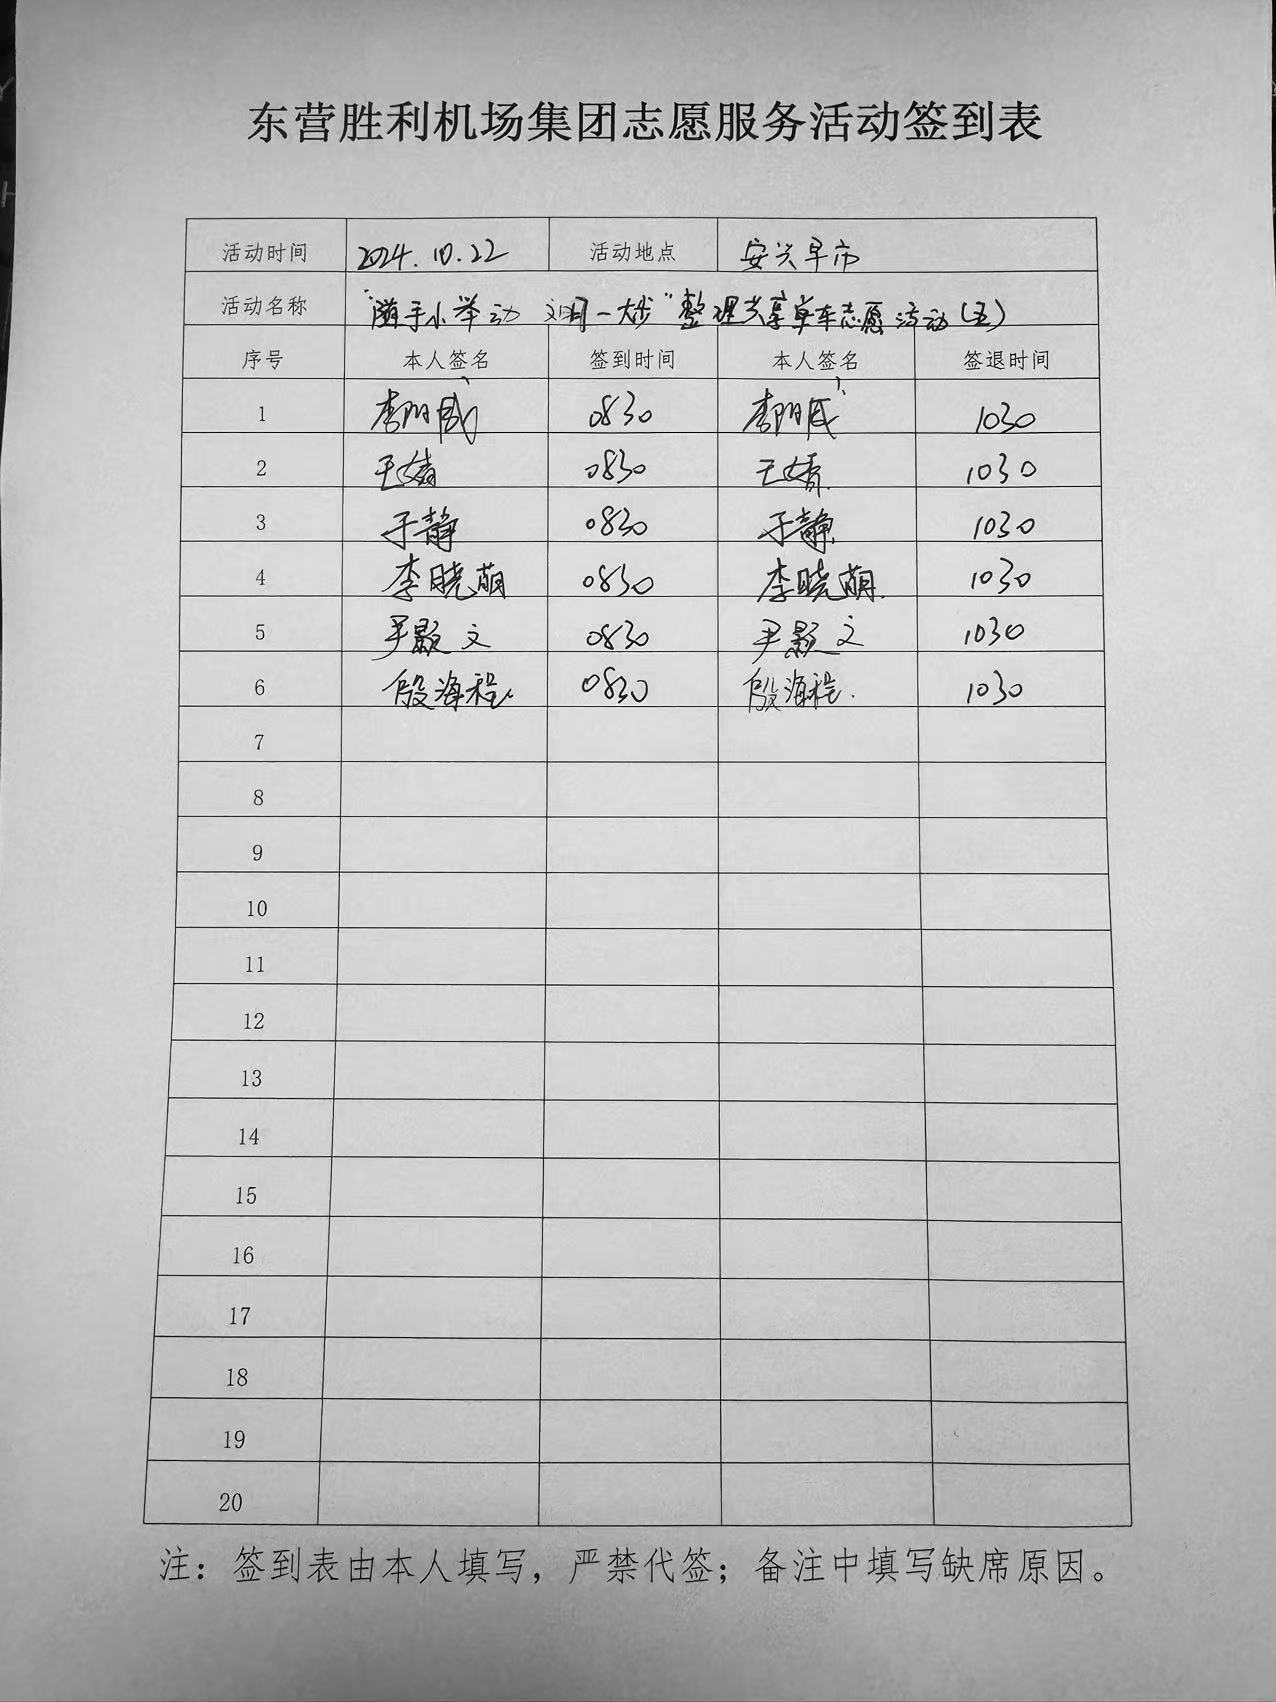 东营胜利机场集团志愿服务活动签到表
活动时间 2024.10.22 活动地点 安兴早市
活动名称 "随手小举动 文明一大步"整理共享单车志愿活动(五)
序号 本人签名 签到时间 本人签名 签退时间
1 李阳威 0830 李阳威 1030
2 王婧 0830 王婧 1030
3 于静 0830 于静 1030
4 李晓萌 0830 李晓萌 1030
5 尹颢文 0830 尹颢文 1030
6 殷海程 0830 殷海程 1030
7
8
9
10
11
12
13
14
15
16
17
18
19
20
注：签到表由本人填写，严禁代签；备注中填写缺席原因。